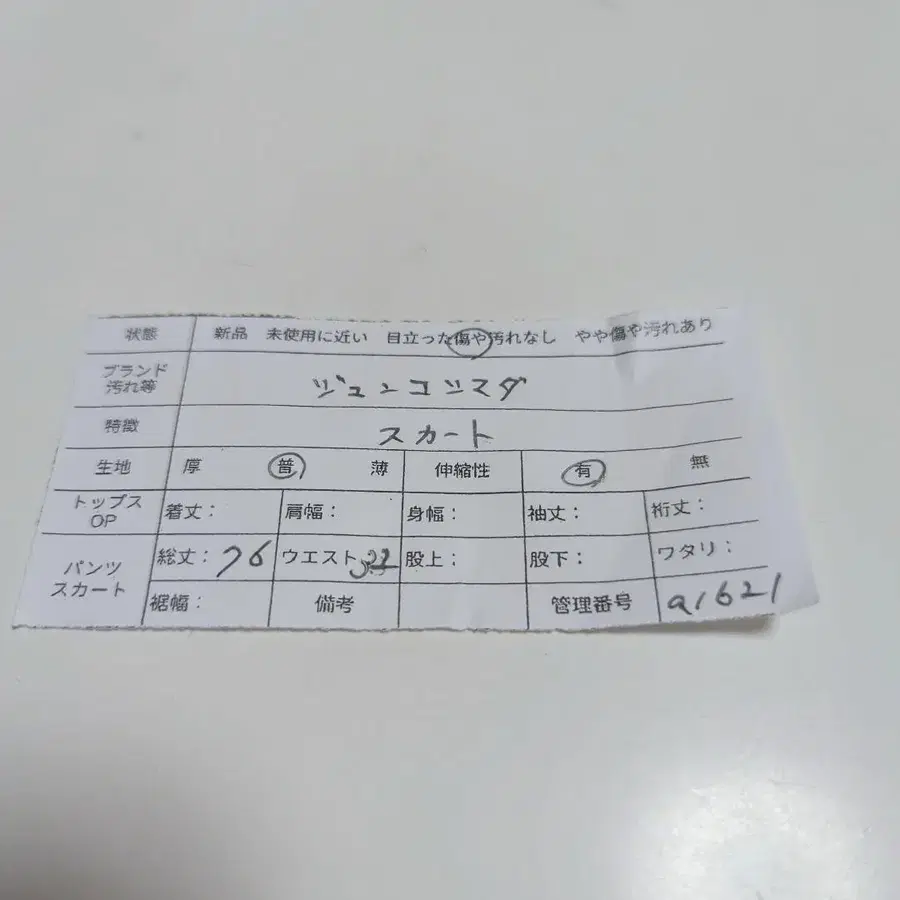 状態 新品 未使用に近い 目立った傷や汚れなし やや傷や汚れあり
ブランド
汚れ等 ジュンコシマダ
特徴 スカート
生地 厚 普 薄 伸縮性 有 無
トップス
OP 着丈： 肩幅： 身幅： 袖丈： 裄丈：
パンツ
スカート 総丈：76 ウエスト 股上： 股下： ワタリ：
裾幅： 備考 管理番号 a1621